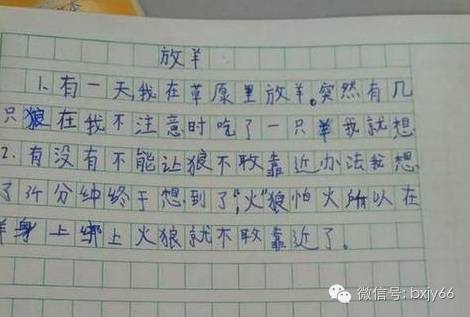 放羊
1. 有一天,我在草原里放羊。突然有几
只狼在我不注意时吃了一只羊我就想
2. 有没有不能让狼不敢靠近办法我想
了3个分钟终于想到了,"火"狼怕火所以在
羊身上绑上火狼就不敢靠近了。
微信号: bxjy66